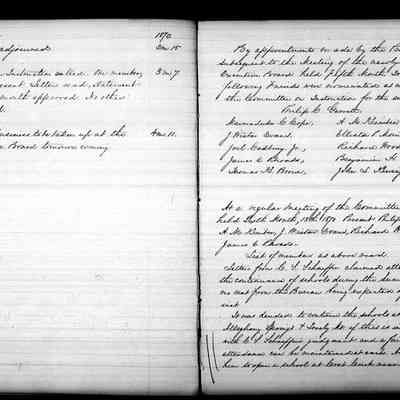 1870
adjourned. 5 mo 15
Instruction called. No members 3 mo 7
present. Letters read, Statement
month approved. No other
business to be taken up at the 4 mo 11.
Board tomorrow evening
By appointments made by the
subsequent to the Meeting of the newly
Executive Board held Fifth Month
following Friends were nominated as
the Committee on Instruction for the
Philip C. Garrett
Marmaduke C. Cope, A. M. Kimber
J. Wistar Evans, Elliston P. Morris
Joel Cadbury, Jr., Richard Wood
James E. Rhoads, Benjamin H.
Thomas H. John S.
At a regular Meeting of the Committee
held Sixth Month, 13th 1870. Present Philip
A. M. Kimber, J. Wistar Evans, Richard
James E. Rhoads.
List of members as above read.
Letters from C. S. Schaeffer claimed
the continuance of schools during the
no aid from the Bureau being expected
rest.
It was decided to continue the schools at
Alleghany Springs & Lovely Mt. if this is
with C. S. Schaeffer's judgment and a
attendance can be maintained at each.
him to open a school at